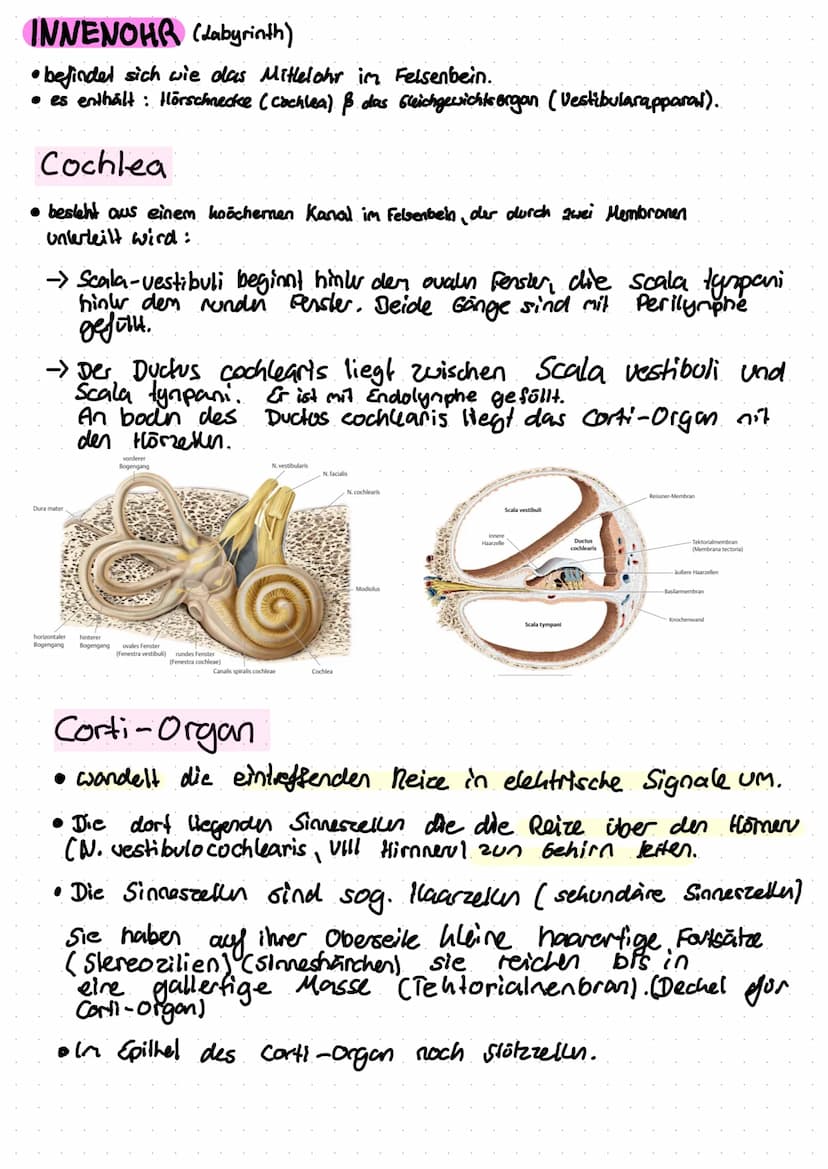 INNENOHR (Labyrinth)
• befindet sich wie das Mittelohr im Felsenbein.
• es enthält : Hörschnecke (Cochlea) & das Gleichgewichtsorgan (Vestibularapparat).
Cochlea
• besteht aus einem knöchernen Kanal im Felsenbein, der durch zwei Membranen
unterteilt wird :
→ Scala-vestibuli beginnt hinter dem ovalen Fenster, die scala tympani
hinter dem runden Fenster. Beide Gänge sind mit Perilymphe
gefüllt.
→ Der Ductus cochlearis liegt zwischen Scala vestibuli und
Scala tympani. Er ist mit Endolymphe gefüllt.
Am boden des Ductus cochlearis liegt das Corti-Organ mit
den Hörzellen.
vorderer
Bogengang
N. vestibularis
N. facialis
N. cochlearis
Dura mater
Modiolus
horizontaler
Bogengang
hinterer
Bogengang
ovales Fenster
(Fenestra vestibuli)
rundes Fenster
(Fenestra cochleae)
Canalis spiralis cochleae
Cochlea
Scala vestibuli
Reissner-Membran
innere
Haarzelle
Ductus
cochlearis
Tektorialmembran
(Membrana tectoria)
äußere Haarzellen
Basilarmembran
Knochenwand
Scala tympani
Corti-Organ
• wandelt die eintreffenden Reize in elektrische Signale um.
• Die dort liegenden Sinneszellen die die Reize über den Hörnerv
(N. vestibulocochlearis, VIII Hirnnerv) zum Gehirn leiten.
• Die Sinneszellen sind sog. Haarzellen (sekundäre Sinneszellen)
Sie haben auf ihrer Oberseite kleine haarartige Fortsätze
(Stereozilien) (Sinneshärchen) sie reichen bis in
eine gallertige Masse (Tektorialmembran). (Deckel für
Corti-Organ)
• Im Epithel des Corti-Organ noch Stützzellen.